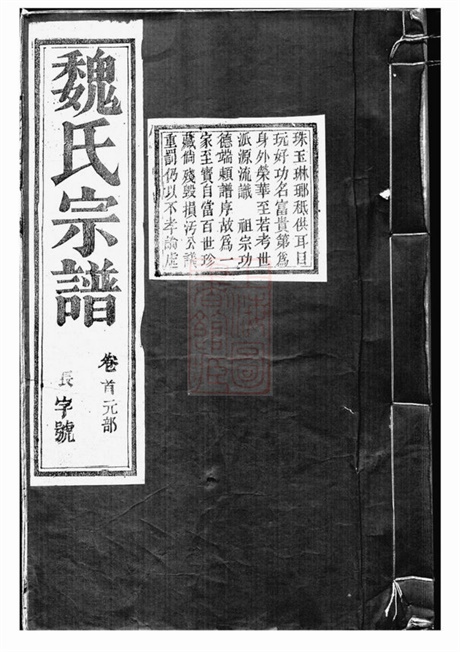 魏氏宗譜
卷首元部
長字號
珠玉琳瑯秪供耳目
玩好功名富貴第爲
身外榮華至若考世
派源流識 祖宗功
德端頼譜序故爲一
家至寳自當百世珍
藏倘殘毀損汚公議
重罰仍以不孝論處